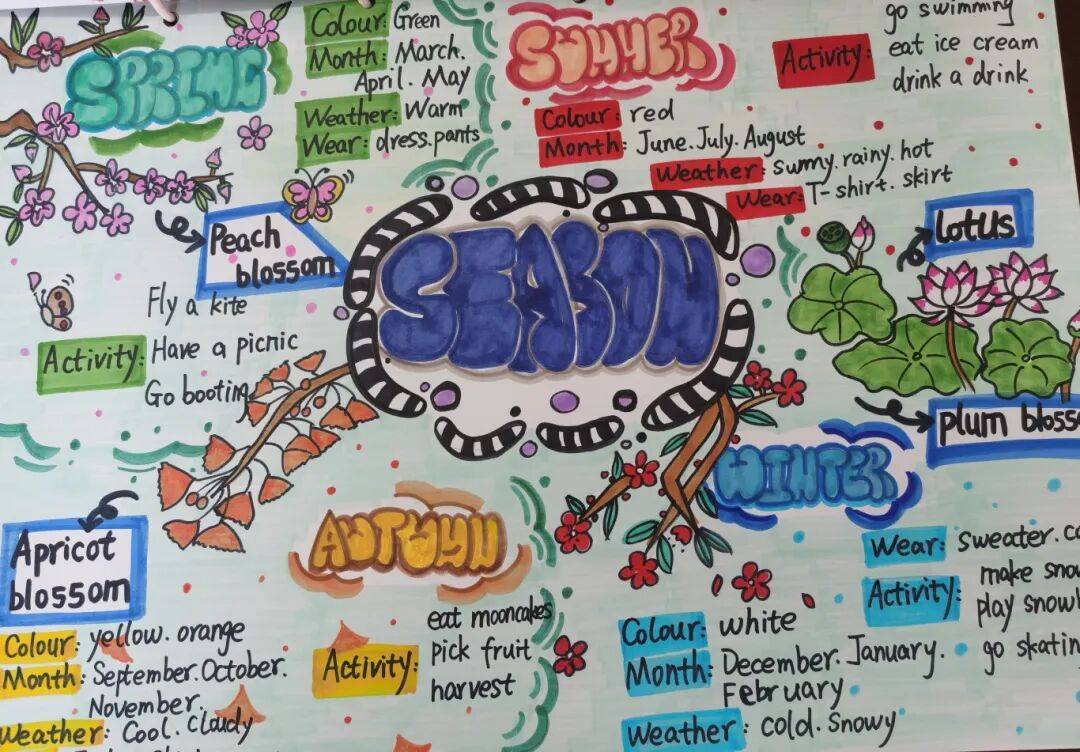 SPRING
Colour: Green
Month: March.
April. May
Weather: Warm
Wear: dress. pants
Peach
blossom
Activity:
Fly a kite
Have a picnic
Go booting
SUMMER
Colour: red
Month: June. July. August
Weather: sunny. rainy. hot
Wear: T-shirt. skirt
Activity:
go swimming
eat ice cream
drink a drink
Lotus
SEASON
AUTUMN
Apricot
blossom
Colour: yellow. orange
Month: September. October.
November.
Weather: Cool. Cloudy
Activity:
eat mooncakes
pick fruit
harvest
WINTER
plum
Wear: sweater.
Activity:
make
play
go
Colour: white
Month: December. January.
February
Weather: cold. Snowy